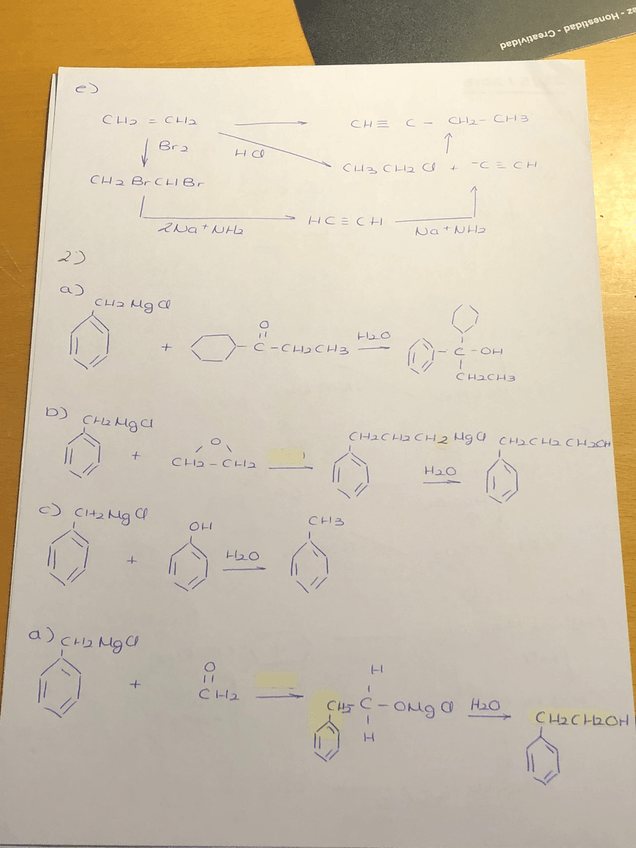 az - Honestidad - Creatividad
e)
CH2 = CH2 → CH≡ C - CH2- CH3
↓ Br2 HCl ↑
CH3 CH2 Cl + ⁻C ≡ CH
CH2 Br CH Br
2Na⁺NH2 HC≡CH Na⁺NH2
2)
a)
CH2 MgCl
+ O
C -CH2CH3 H2O → C -OH
CH2CH3
b) CH2MgCl
+ O
CH2 - CH2 → CH2CH2CH2 MgCl H2O → CH2CH2CH2OH
c) CH2 MgCl
+ OH
H2O → CH3
a) CH2 MgCl
+ O
CH2 → H
C - OMgCl H2O → CH2CH2OH
H